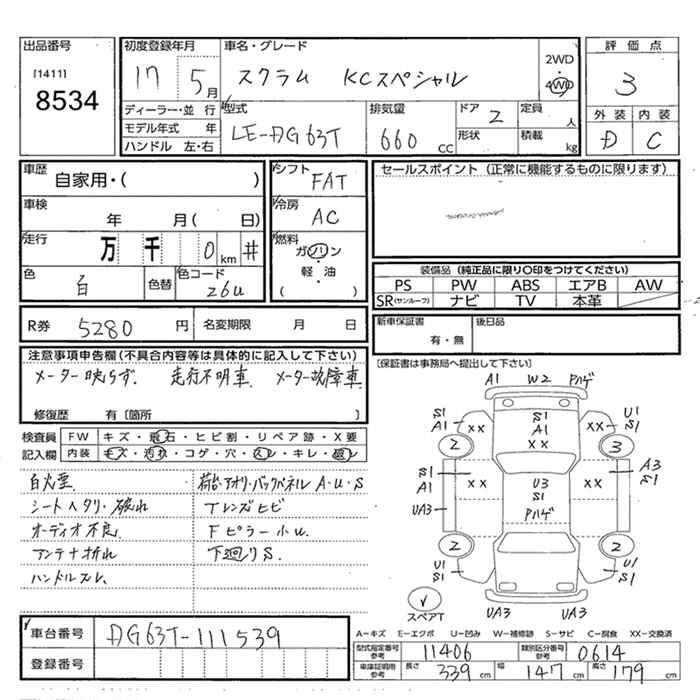 出品番号
[1411]
8534
初度登録年月
17 5月
車名・グレード
スクラム KCスペシャル
2WD
4WD
評価点
3
外装 内装
D C
ディーラー・並行
モデル年式 年
ハンドル 左・右
型式
LE-DG63T
排気量
660 CC
ドア 2
形状
定員 人
積載 kg
車歴
自家用・( )
車検
年 月( 日)
走行
万 千 0 km #
色
白
色替
色コード
26U
シフト
FAT
冷房
AC
燃料
ガソリン
・
軽・油
( )
セールスポイント (正常に機能するものに限ります)
装備品 (純正品に限り○印をつけてください)
PS PW ABS エアB AW
SR(サンルーフ) ナビ TV 本革
R券 5280 円
名変期限 月 日
新車保証書
有・無
後日品
[保証書は事務局へ提出して下さい]
注意事項申告欄(不具合内容等は具体的に記入して下さい)
メーター映らず. 走行不明車. メーター故障車
修復歴 有〔箇所 〕
検査員
記入欄
FW キズ・飛石・ヒビ割・リペア跡・X要
内装 キズ・汚れ・コゲ・穴・スレ・キレ・破レ
シートヘタリ・破れ
オーディオ不良
アンテナ折れ
ハンドルスレ
荷台・アオリ・バックパネル A・U・S
Tレンズヒビ
Fピラー小U.
下廻りS.
A1 W2 Pハゲ
S1
A1
XX
2
S1
A1
XX
U1
S1
XX
3
S1
A1
XX
UA3
U3
S1
Pハゲ
XX
A3
S1
2
U1
S1
2
U1
S1
スペアT
UA3 UA3
車台番号 DG63T-111539
登録番号
A-キズ E-エクボ U-凹み W-補修跡 S-サビ C-腐食 XX-交換済
型式指定番号
参考
11406
類別区分番号
参考
0614
車庫証明用
参考
長さ 339 cm 幅 147 cm 高さ 179 cm